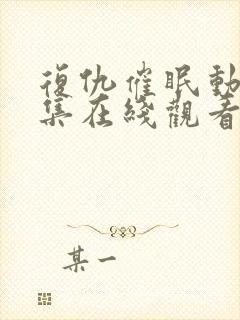 復仇催眠動
集在綫觀看
某一